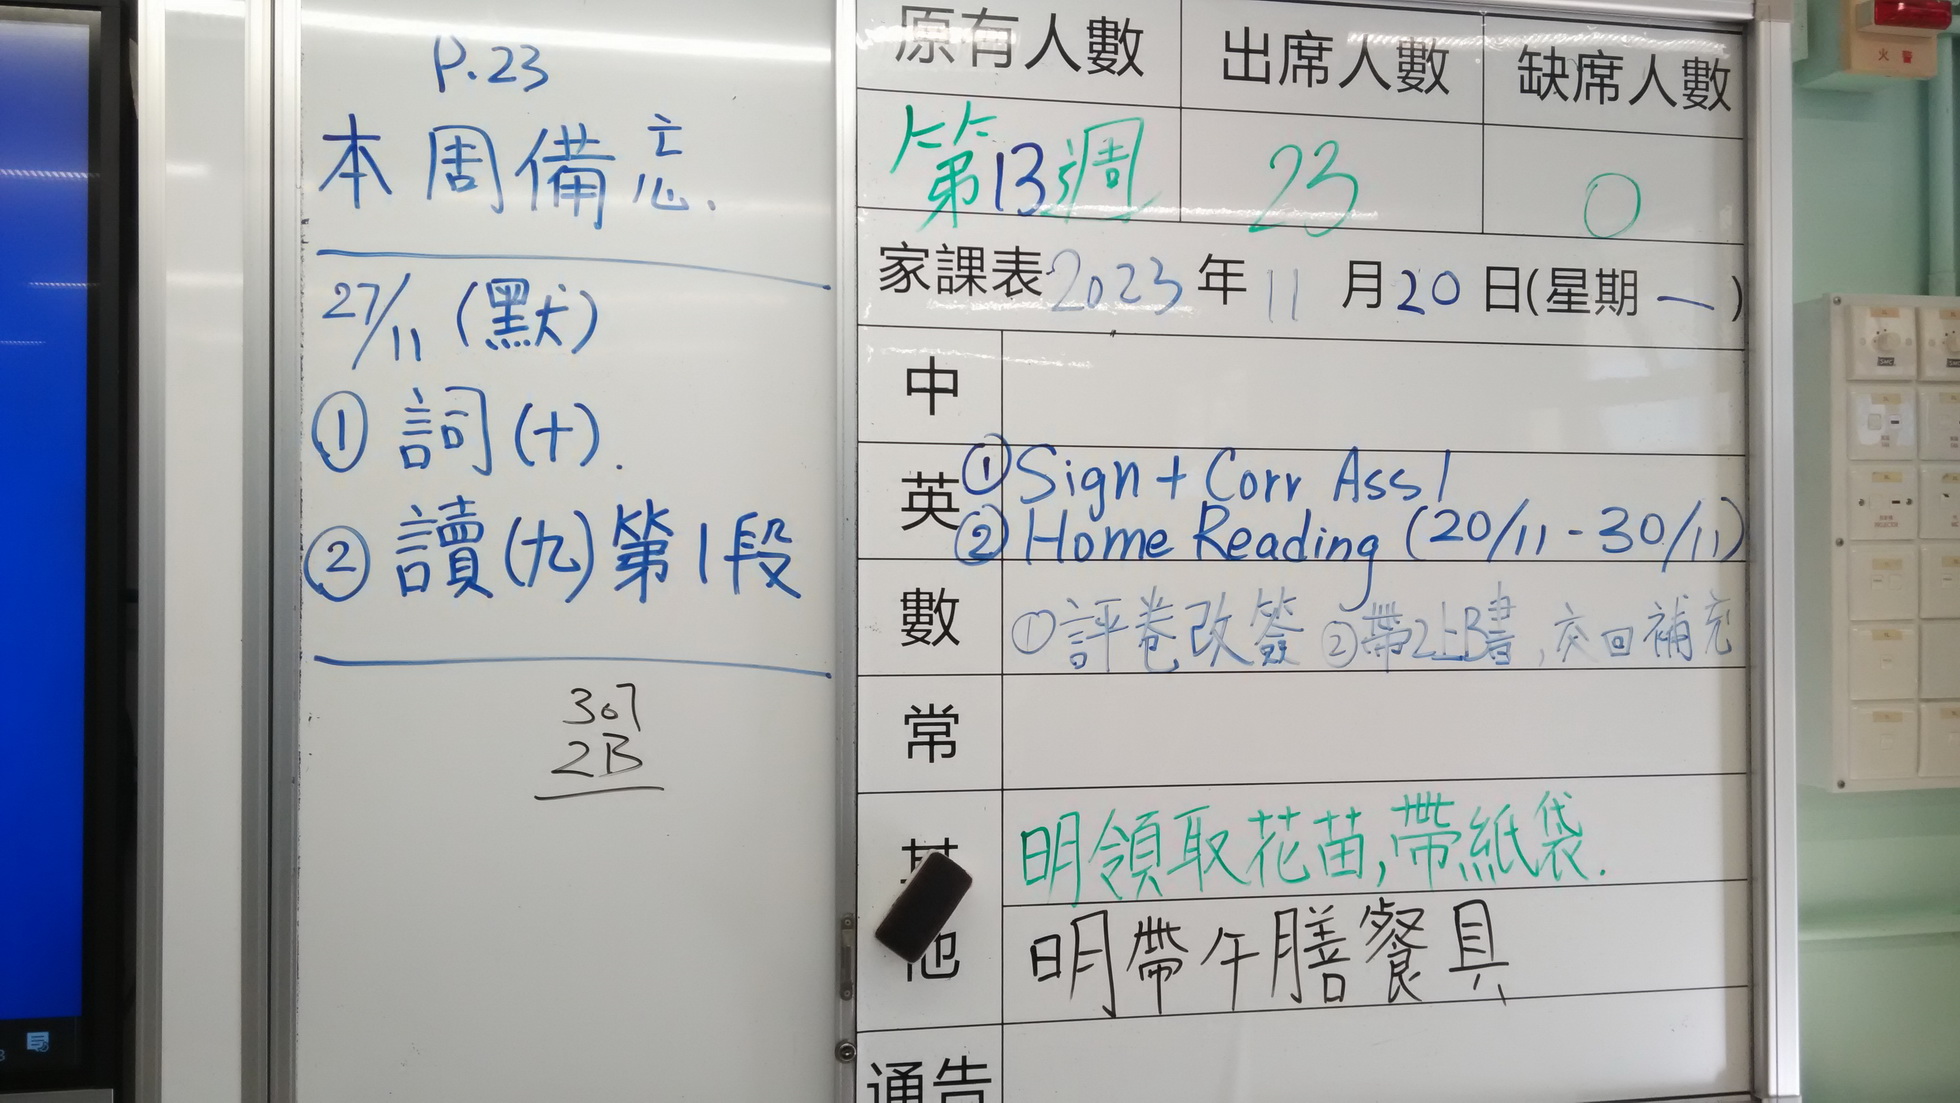 P.23
本周備忘.
27/11 (默)
① 詞(十).
② 讀(九)第1段
307
2B
原有人數 出席人數 缺席人數
第13週 23 0
家課表 2023 年 11 月 20 日(星期 一 )
中
英 ① Sign + Corr Ass 1
② Home Reading (20/11 - 30/11)
數 ①評卷改簽 ②帶2上B書,交回補充
常
其他 明領取花苗,帶紙袋.
明帶午膳餐具
通告
火警